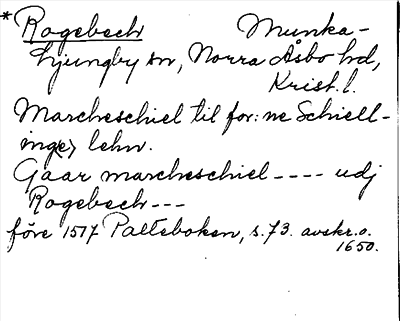 * Rogebech Munka-
Ljungby sn, Norra Åsbo hd,
Krist. l.
Marcheschiel til for: ne Schiell-
ing(e) lehn.
Gaar marcheschiel - - - - udj
Rogebech - - -
före 1517 Palteboken, s. 73. avskr. o.
1650.